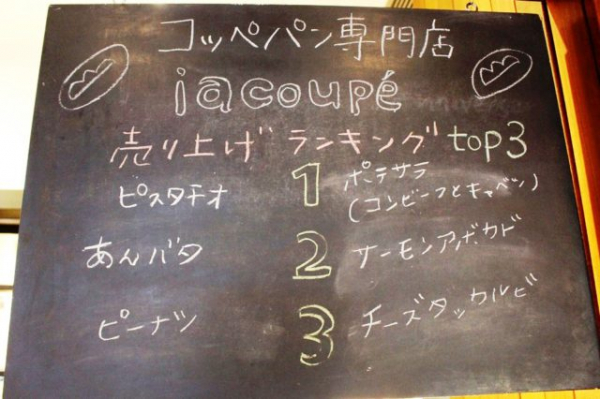 コッペパン専門店
iacoupé
売り上げランキングtop3
ピスタチオ 1 ポテサラ
(コンビーフとキャベツ)
あんバタ 2 サーモンアボカド
ピーナツ 3 チーズタッカルビ